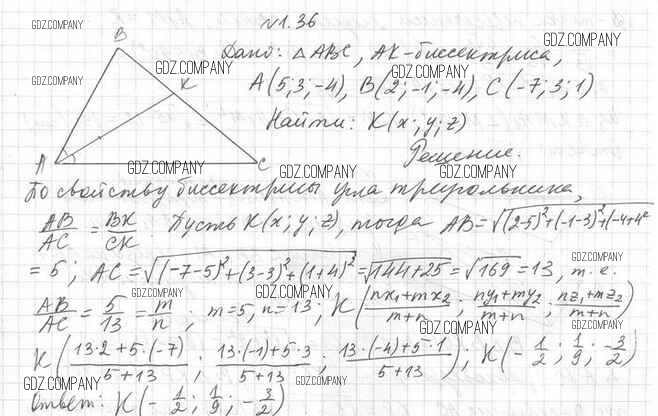 №1.36
GDZ.COMPANY
GDZ.COMPANY
B
Дано: △ABC, AK-биссектриса,
GDZ.COMPANY
GDZ.COMPANY
GDZ.COMPANY
K
A(5;3;-4), B(2;-1;-4), C(-7;3;1)
Найти: K(x;y;z)
A
C
GDZ.COMPANY
GDZ.COMPANY
GDZ.COMPANY
Решение.
По свойству биссектрисы угла треугольника,
AB/AC = BK/CK. Пусть K(x;y;z), тогда AB=√((2-5)²+(-1-3)²+(-4+4)²
= 5; AC=√((-7-5)²+(3-3)²+(1+4)²=√144+25=√169=13, т.е.
GDZ.COMPANY
GDZ.COMPANY
GDZ.COMPANY
AB/AC = 5/13 = m/n; m=5, n=13; K((nx₁+mx₂)/(m+n); (ny₁+my₂)/(m+n); (nz₁+mz₂)/(m+n))
GDZ.COMPANY
GDZ.COMPANY
K((13·2+5·(-7))/(5+13); (13·(-1)+5·3)/(5+13); (13·(-4)+5·1)/(5+13)); K(-1/2; 1/9; -3/2)
GDZ.COMPANY
GDZ.COMPANY
Ответ: K(-1/2; 1/9; -3/2)